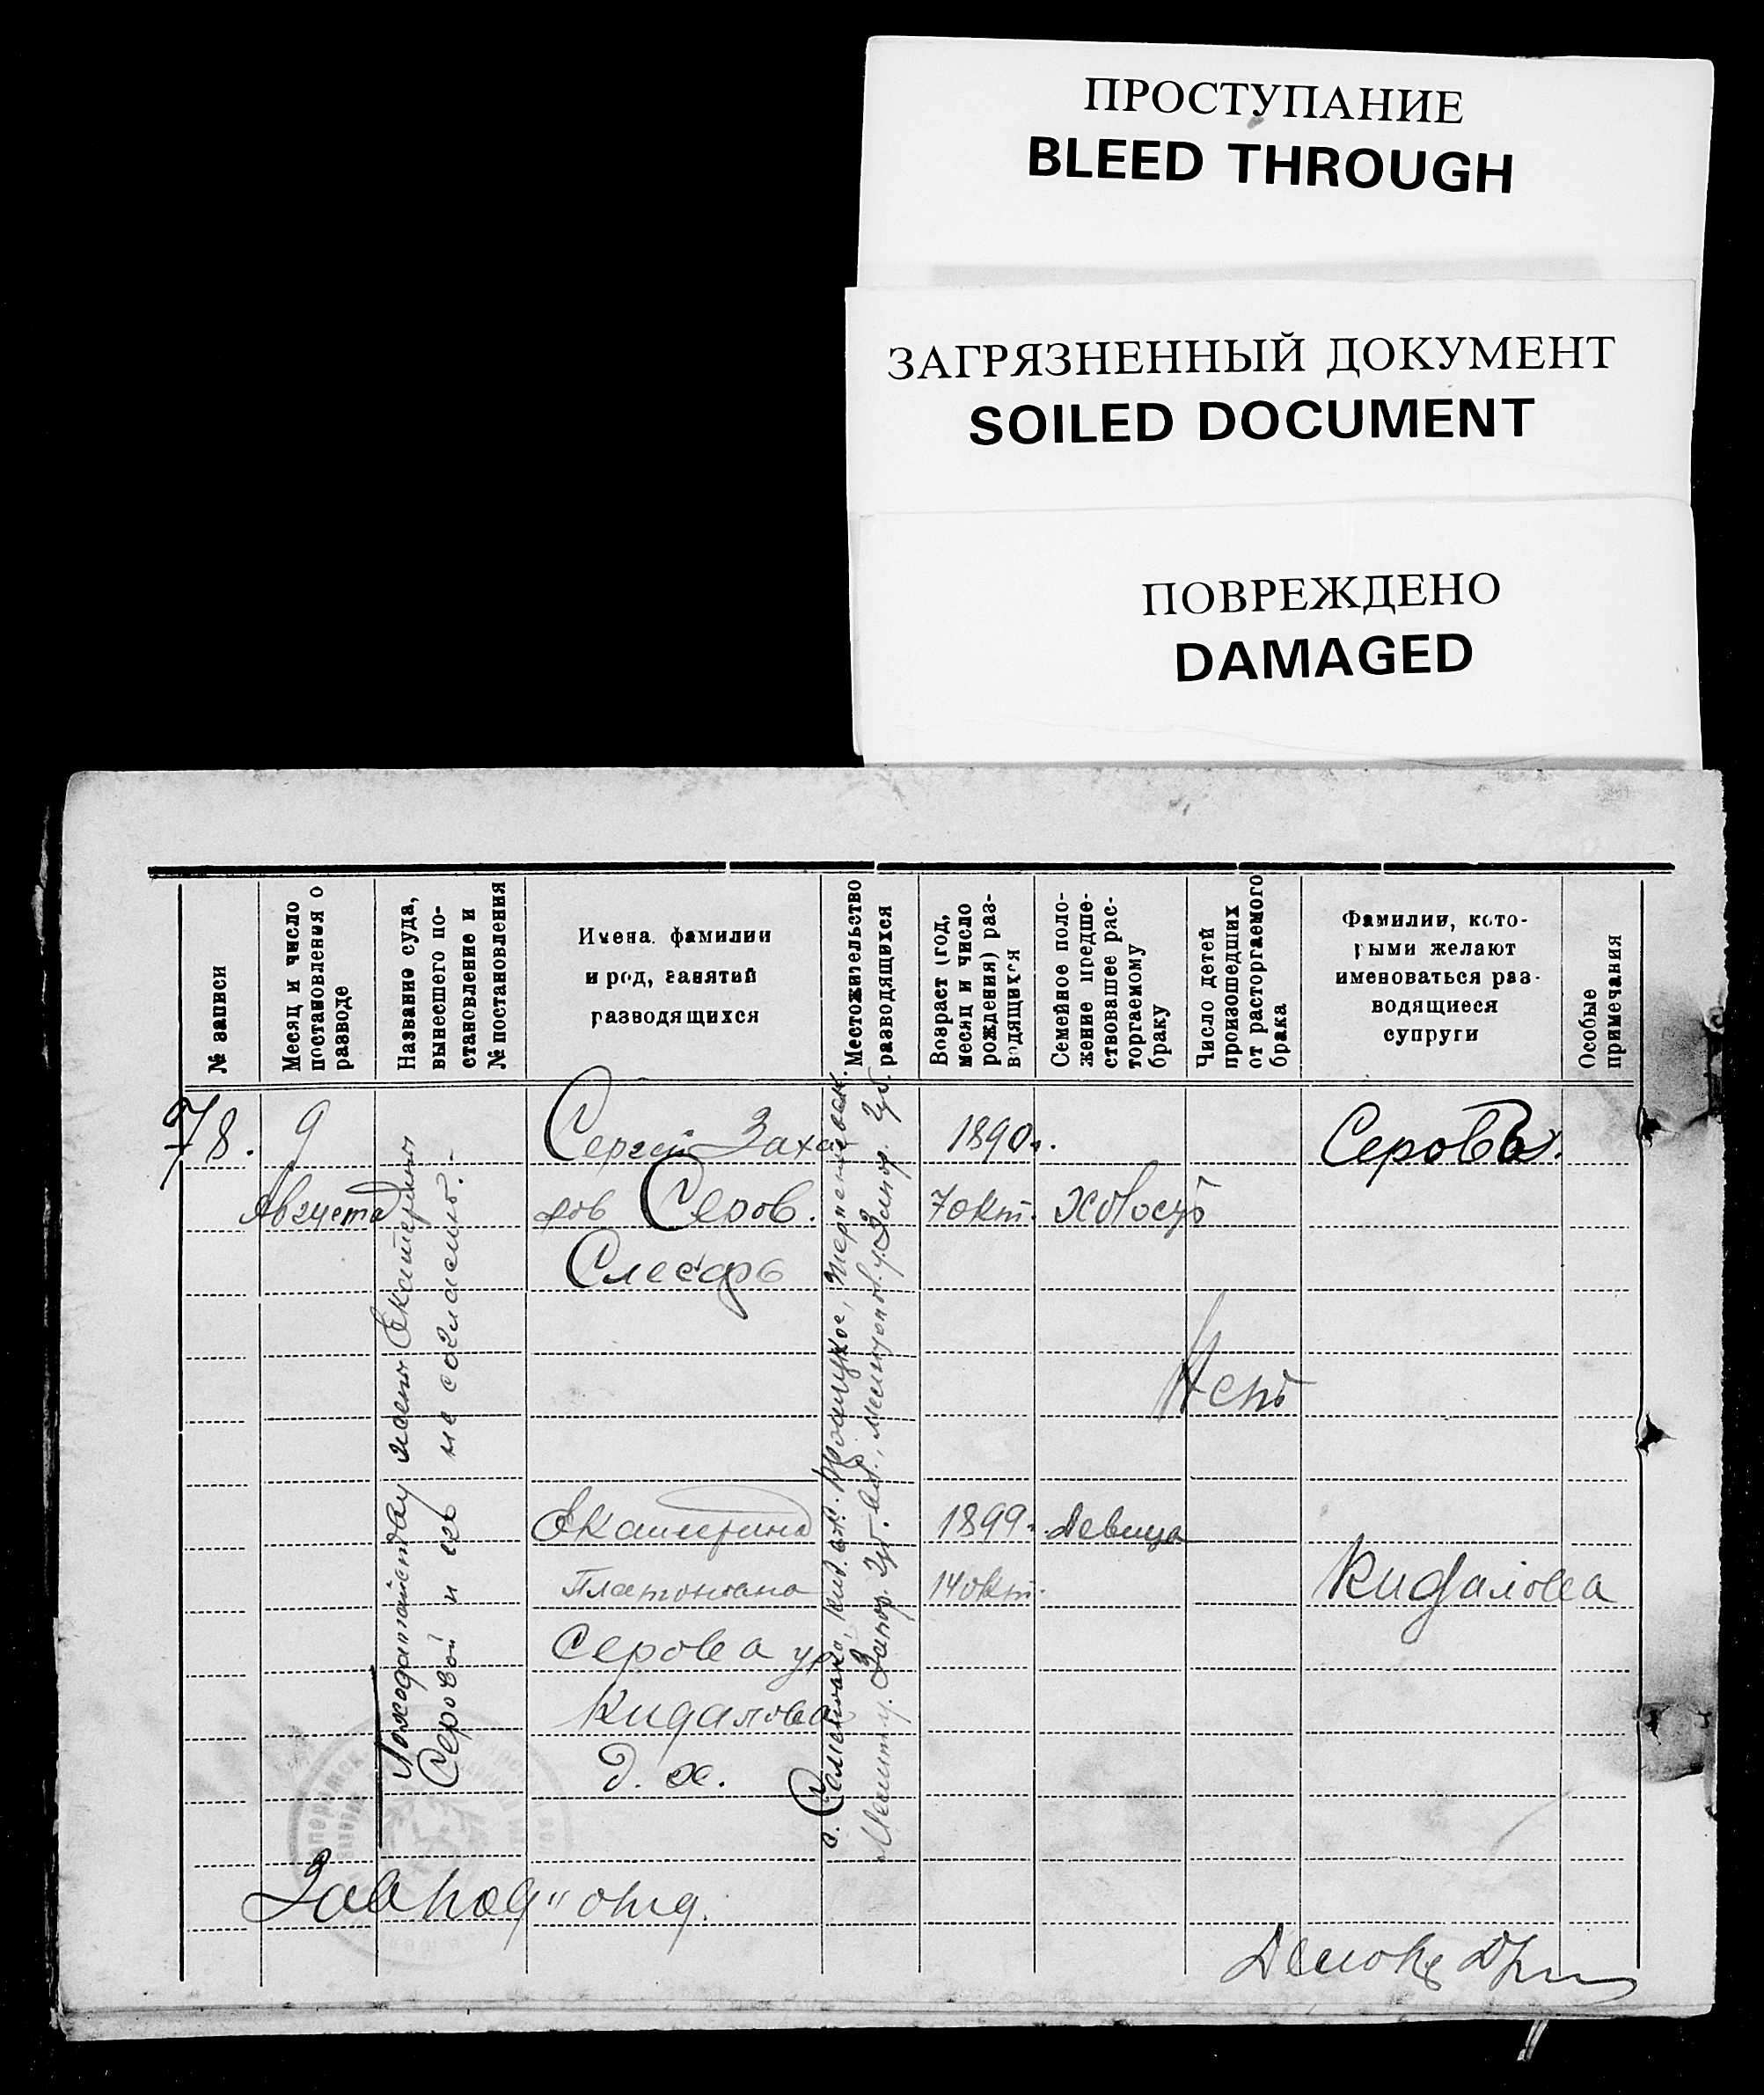 ПРОСТУПАНИЕ
BLEED THROUGH
ЗАГРЯЗНЕННЫЙ ДОКУМЕНТ
SOILED DOCUMENT
ПОВРЕЖДЕНО
DAMAGED
№ записи
Месяц и число
постановления о
разводе
Название суда,
вынесшего по-
становление и
№ постановления
Имена, фамилии
и род, занятий
разводящихся
Местожительство
разводящихся
Возраст (год,
месяц и число
рождения) раз-
водящихся
Семейное поло-
жение предше-
ствовавшее рас-
торгаемому
браку
Число детей
происшедших
от расторгаемого
брака
Фамилии, кото-
рыми желают
именоваться раз-
водящиеся
супруги
Особые
примечания
78.
9
Августа
По ходатайству жены Екатерины
Серовой и его на согласие.-
Сергей Заха-
ров Серов.
Слесарь
Екатерина
Платоновна
Серова ур.
Кидалова
д. х.
с. Семеновка, Троицкое, Терпеньевск.
Запор. губ.
1890 г.
7 окт.
1899 г.
14 окт.
Холост
Девица
Нет
Серов
Кидалова
Зав под" отд.